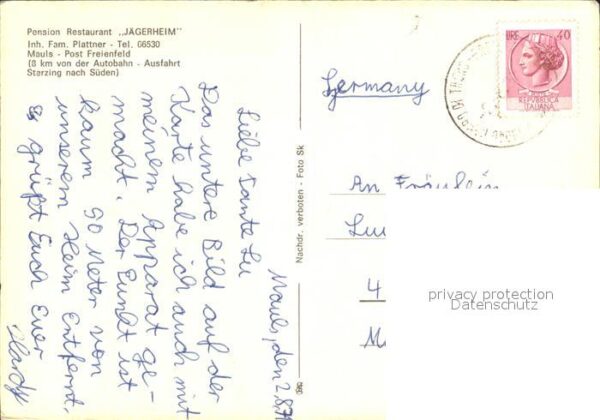 Pension Restaurant „JÄGERHEIM"
Inh. Fam. Plattner - Tel. 66530
Mauls - Post Freienfeld
(8 km von der Autobahn - Ausfahrt
Sterzing nach Süden)
Mauls, den 2.8.71
Liebe Tante Lu
Das untere Bild auf der
Karte habe ich auch mit
meinem Apparat ge-
macht. Der Punkt ist
kaum 90 Meter von
unserem Heim Entfernt.
Es grüßt Euch Euer
Hardy
Nachdr. verboten - Foto Sk
LIRE 40
REPVBBLICA
ITALIANA
Germany
An Fräulein
4
privacy protection
Datenschutz